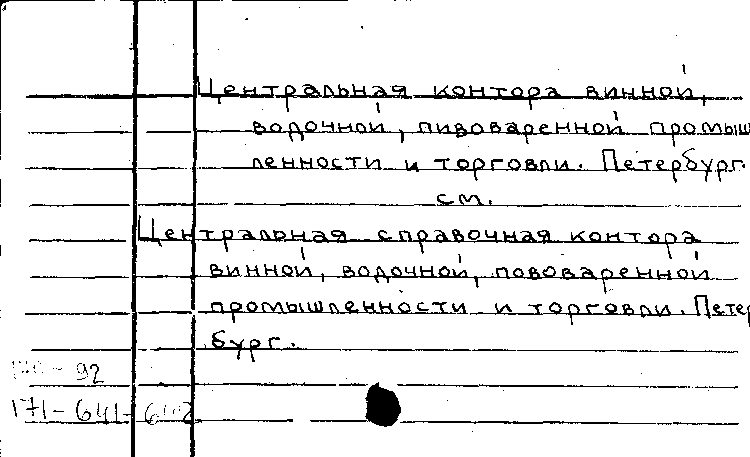 Центральная контора винной,
водочной, пивоваренной промыш
ленности и торговли. Петербург.
см.
Центральная справочная контора
винной, водочной, пововаренной
промышленности и торговли. Петер
бург.
92
171-641-